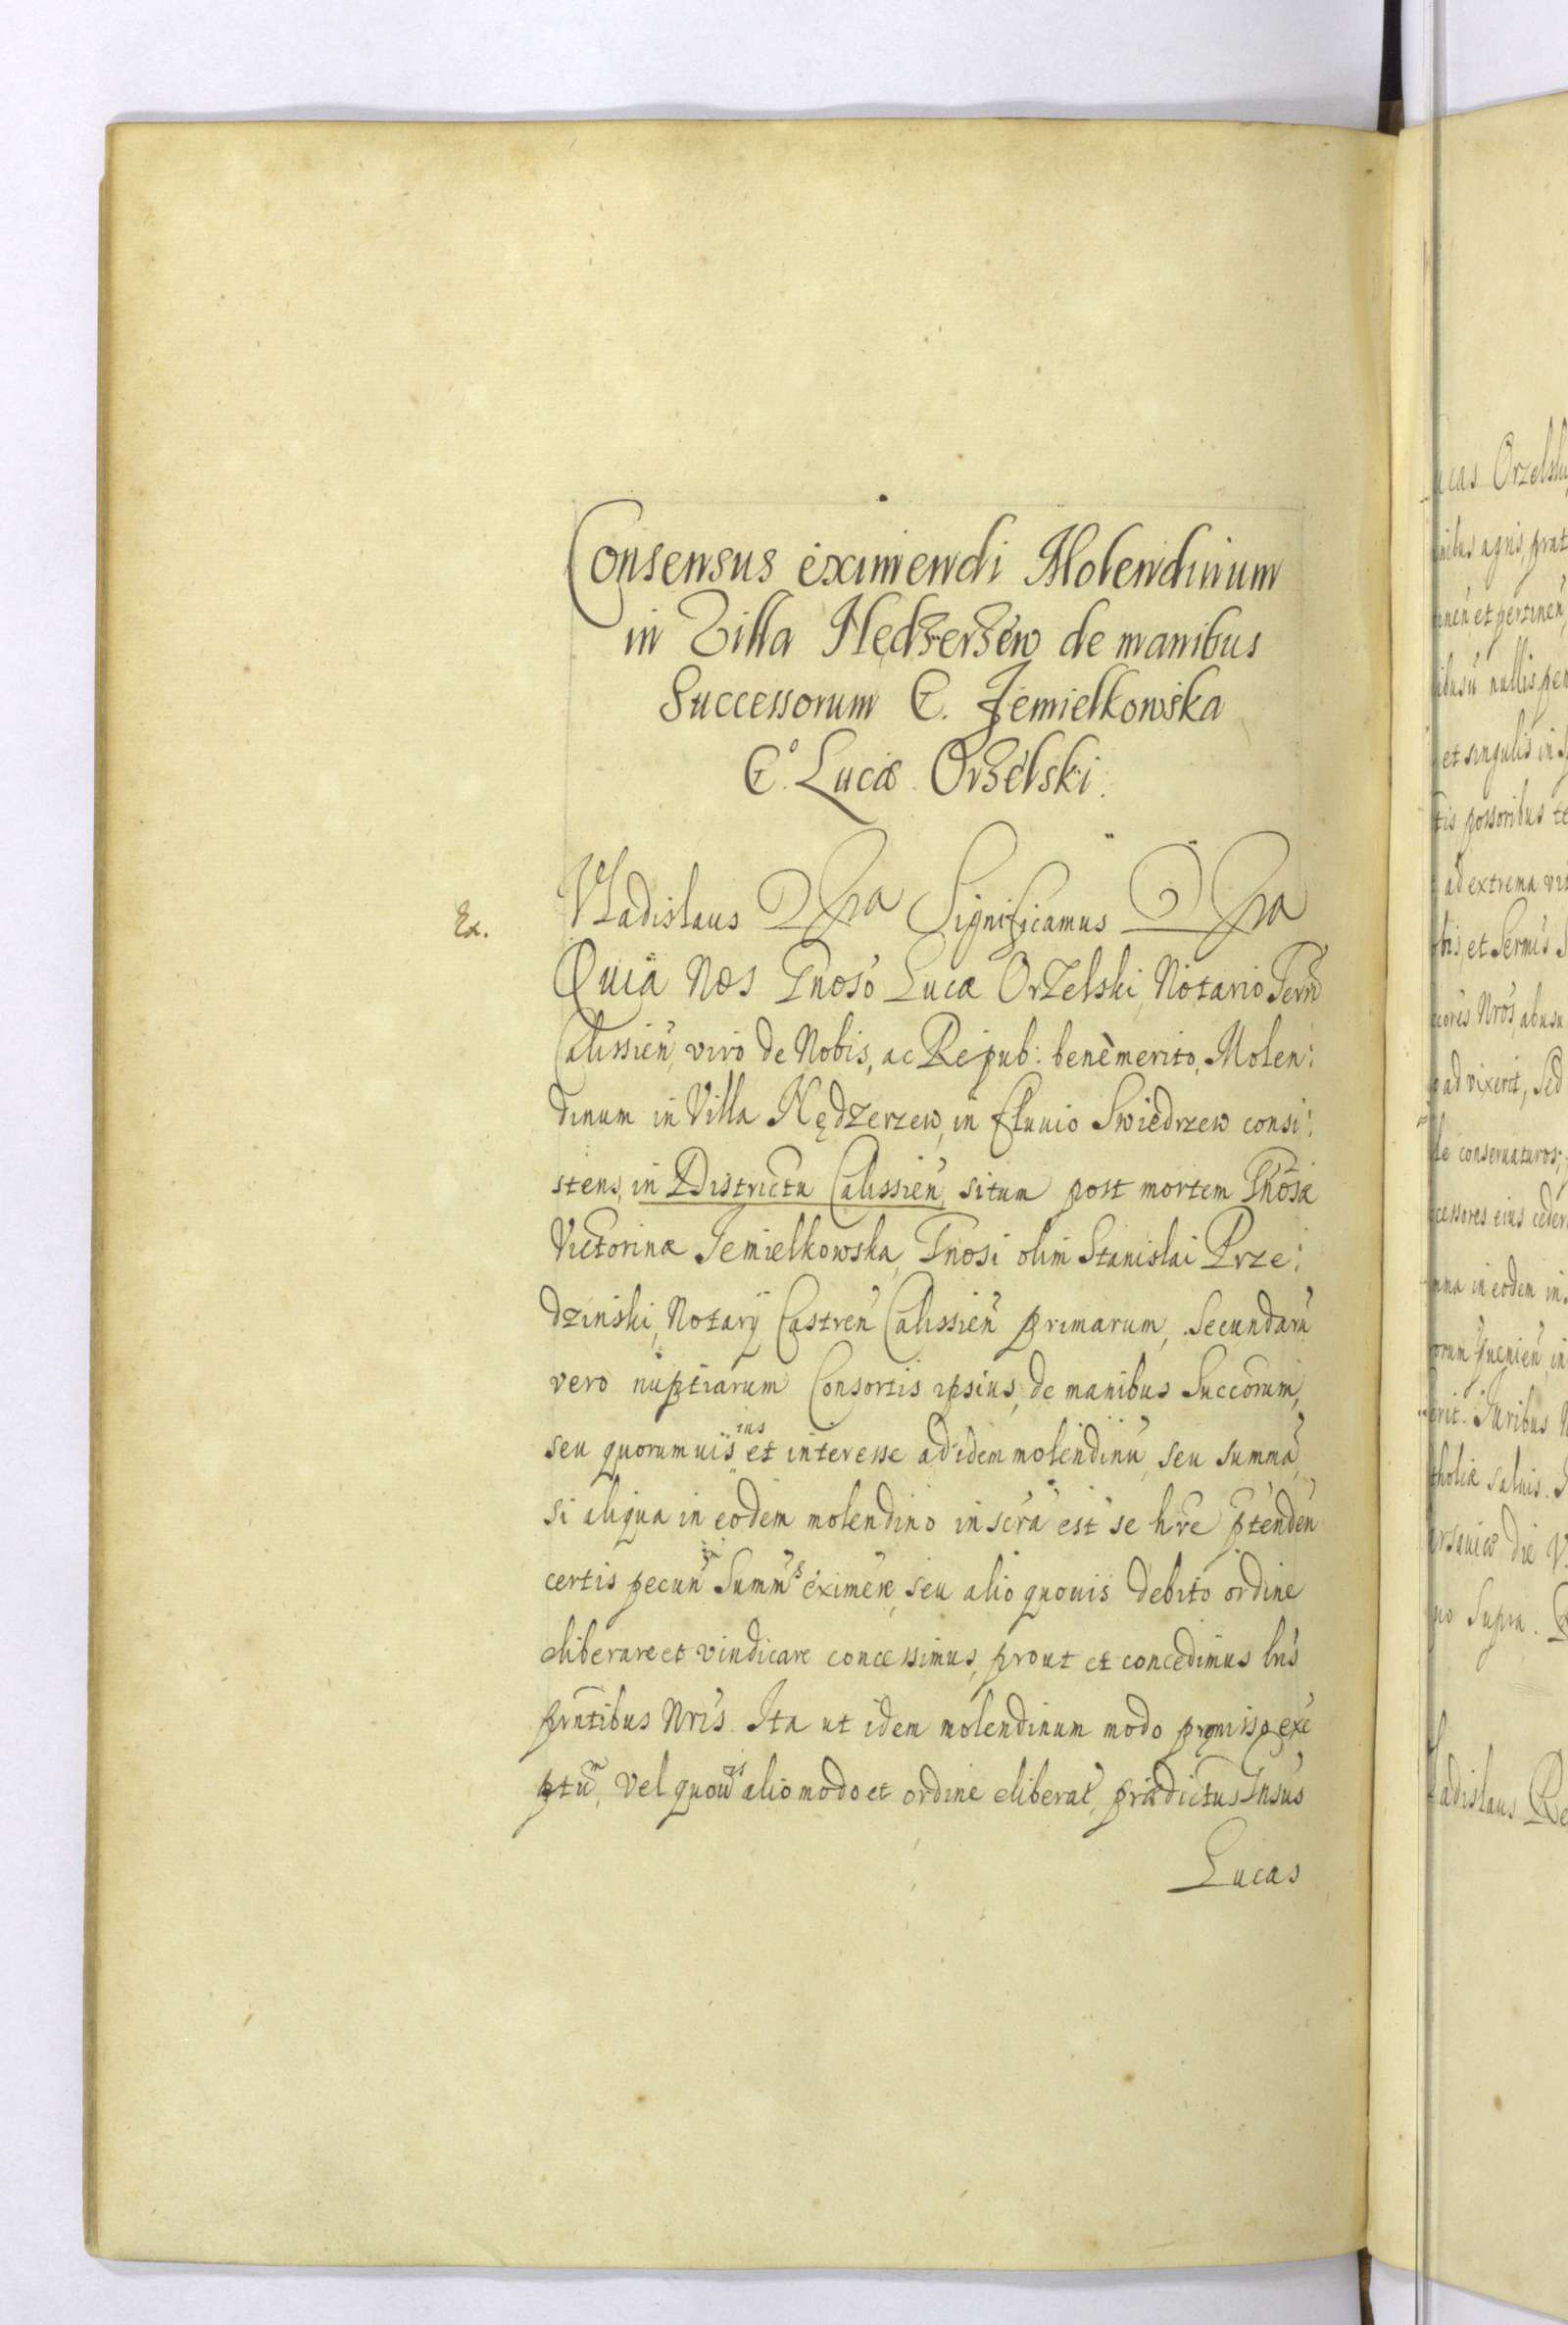 Consensus eximendi Molendinum
in Villa Nędzerzew de manibus
Successorum G. Jemielkowska
Gº. Lucæ Orzelski.
Ex.
Vladislaus Significamus
Quia Nos Gnoso Lucæ Orzelski, Notario Terrn
Calissien, viro de Nobis, ac Repub: benèmerito, Molen:
dinum in Villa Nędzerzew, in fluuio Swiedrzew consi:
stens, in Districtu Calissien, situm post mortem Gnosæ
Victorinæ Jemielkowska, Gnosi olim Stanislai Prze:
dzinski, Notarÿ Castren Calissien primarum, Secundarũ
vero nuptiarum Consortis ipsius, de manibus Succorum,
seu quorumuis ius et interesse ad idem molendinũ, seu summã,
si aliqua in eodem molendino inscrã est se hre ptenden
certis pecun Summˢ eximere, seu alio quouis debito ordine
eliberare et vindicare concessimus, prout et concedimus lris
prntibus Nris. Ita ut idem molendinum modo præmisso exe
ptum, vel quouis alio modo et ordine eliberat, prædictus Gnsus
Lucas
ucas Orzelski
nibus agris, prat
nen et pertinen
nullis pen
et singulis in
tis possoribus te
ad extrema vit
bis, et Sermis S
cores Nros abusu
ad vixerit, Sed
le conseruaturos;
cessores eius ceder
mma in eodem in
orum in
erit. Juribus N
tholicæ saluis. 
arsauiæ die V
uo Supra.
ladislaus Re